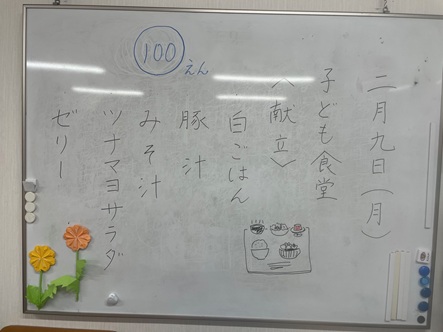 二月九日(月)
子ども食堂
〈献立〉
・白ごはん
豚汁
みそ汁
ツナマヨサラダ
ゼリー
100
えん